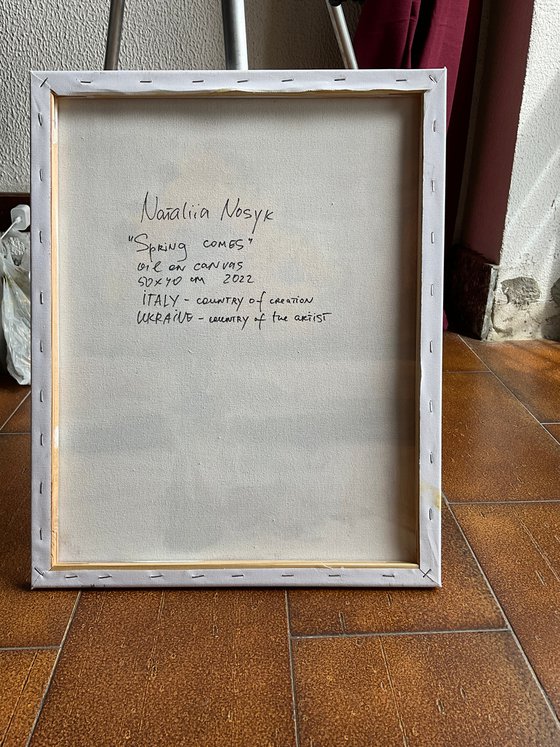 Nataliia Nosyk
"Spring comes"
oil on canvas
50x40 cm 2022
ITALY - country of creation
UKRAINE - country of the artist